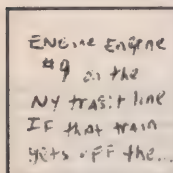 ENGINE ENGINE
#9 on the
NY trasit line
IF that train
gets off the...